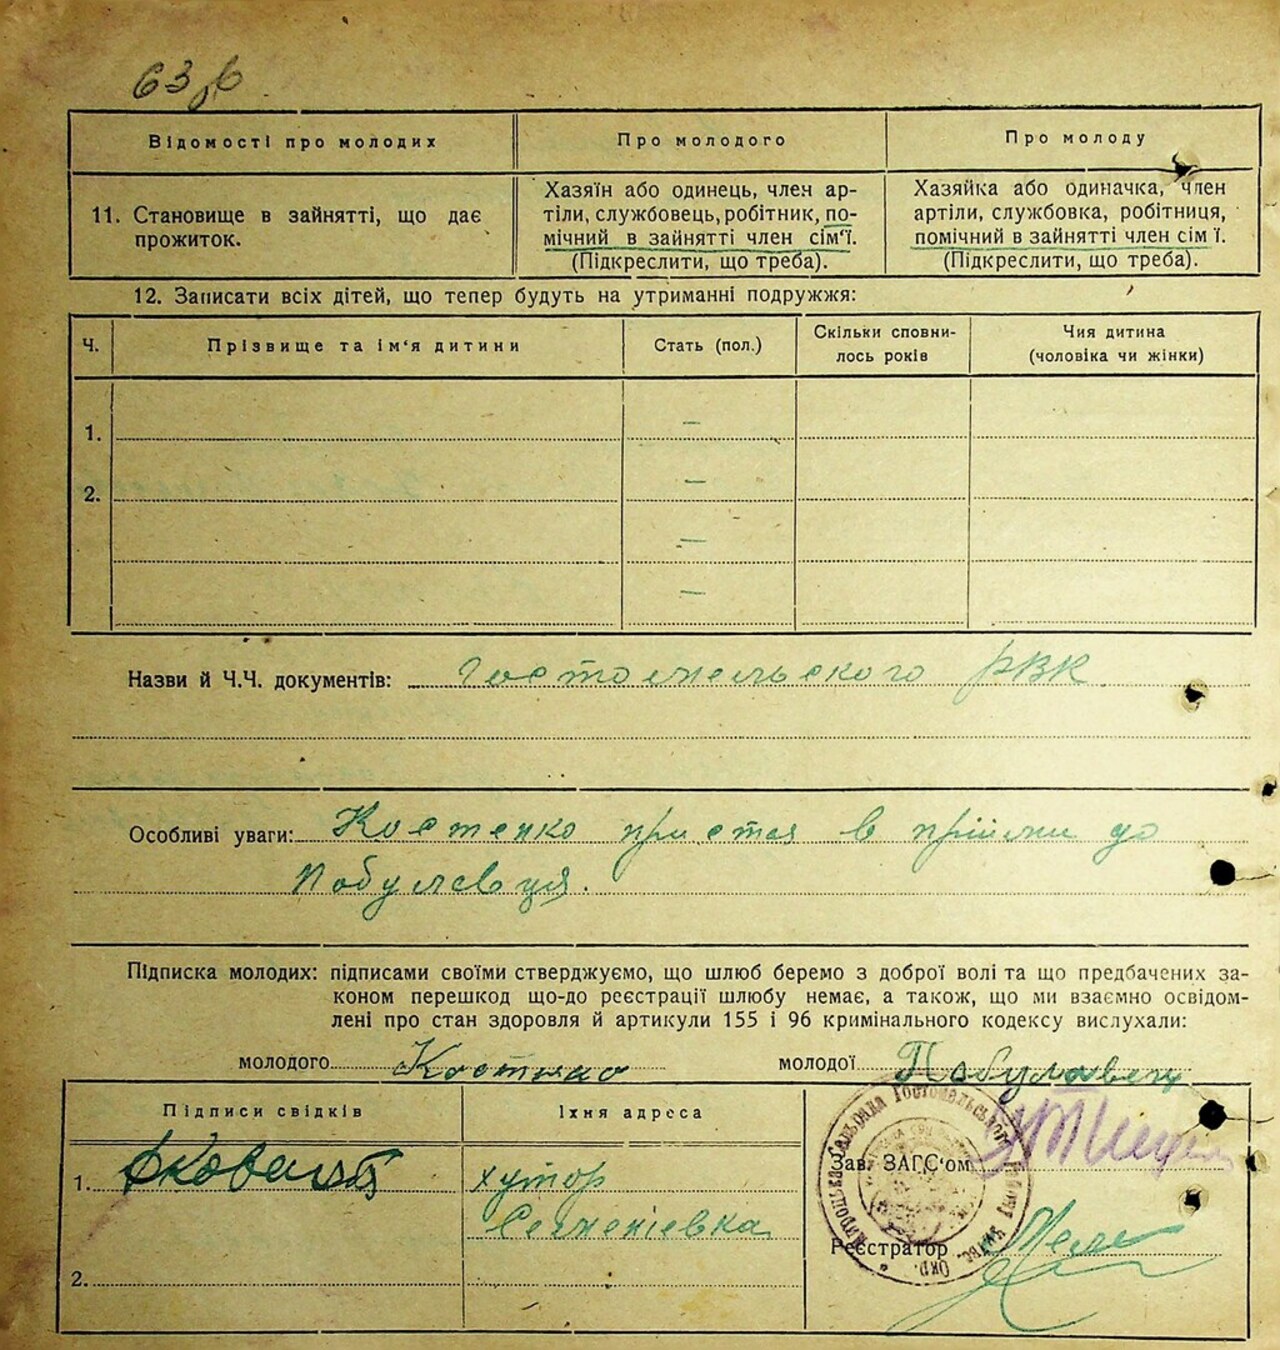 63 зв
Відомості про молодих
Про молодого
Про молоду
11. Становище в зайнятті, що дає
прожиток.
Хазяїн або одинець, член ар-
тіли, службовець, робітник, по-
мічний в зайнятті член сім‘ї.
(Підкреслити, що треба).
Хазяйка або одиначка, член
артіли, службовка, робітниця,
помічний в зайнятті член сім ї.
(Підкреслити, що треба).
12. Записати всіх дітей, що тепер будуть на утриманні подружжя:
Ч.
Прізвище та ім‘я дитини
Стать (пол.)
Скільки сповни-
лось років
Чия дитина
(чоловіка чи жінки)
1.
—
2.
—
—
—
Назви й Ч.Ч. документів: Гостомельского РВК
Особливі уваги: Костенко пристав в прийми до
Побулавця.
Підписка молодих: підписами своїми стверджуємо, що шлюб беремо з доброї волі та що предбачених за-
коном перешкод що-до реєстрації шлюбу немає, а також, що ми взаємно освідом-
лені про стан здоровля й артикули 155 і 96 кримінального кодексу вислухали:
молодого Костенко молодої Побулавец
Підписи свідків
Їхня адреса
1.
хутор
2.
Зав. ЗАГС‘ом
Реєстратор
сельрада Гостомельського району Київс. Окр.